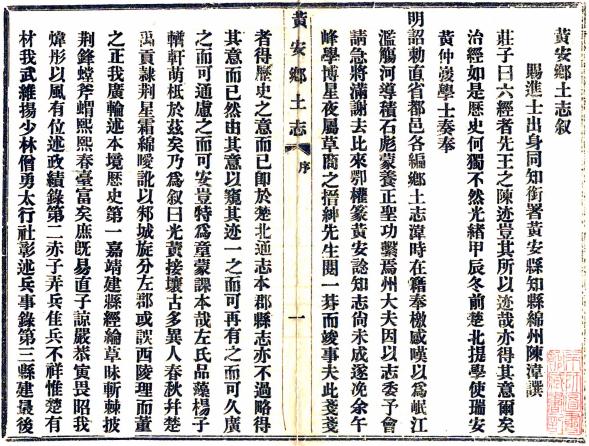 黃安鄉土志叙
賜進士出身同知銜署黃安縣知縣綿州陳漳譔
莊子曰六經者先王之陳迹豈其所以迹哉亦得其意爾矣
治經如是歷史何獨不然光緒甲辰冬前楚北提學使瑞安
黃仲弢學士奏奉
明詔勅直省都邑各編鄉土志漳時在籍奉檄感嘆以爲岷江
濫觴河導積石彪蒙養正聖功繫焉州大夫因以志委予會
請急將滿謝去比來鄂權篆黃安諗知志尚未成遂浼余午
峰學博星夜屬草商之搢紳先生閱一朞而竣事夫此戔戔
黃安鄉土志
序
一
者得歷史之意而已卽於楚北通志本郡縣志亦不過略得
其意而已然由其意以窺其迹一之而可再有之而可久廣
之而可通慮之而可安豈特爲童蒙課本哉左氏品藻楊子
輶軒萌柢於茲矣乃爲叙曰光黃接壤古多異人春秋幷楚
禹貢隸荆星霜綿曖訛以邾城旋分左郡或誤西陵理而董
之正我廣輪述本境歷史第一嘉靖建縣經綸草昧斬棘披
荆鋒螳斧蝟熙熙春臺富矣庶旣易直子諒嚴恭寅畏昭我
煒彤以風有位述政績錄第二赤子弄兵佳兵不祥惟楚有
材我武維揚少林僧勇太行社彰述兵事錄第三縣建最後